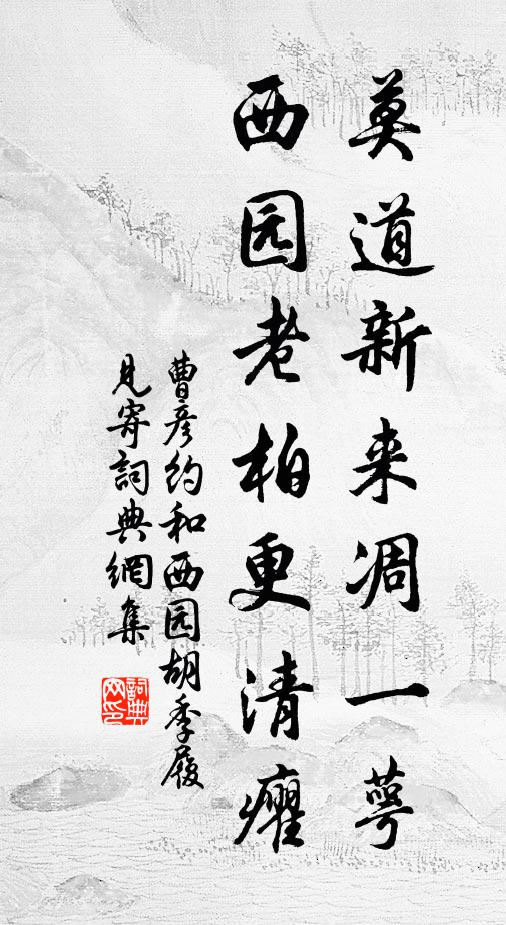 莫道新来凋一萼
西园老柏更清癯
曹彦约和西园胡季履
见寄詞典網集
詞典
网印